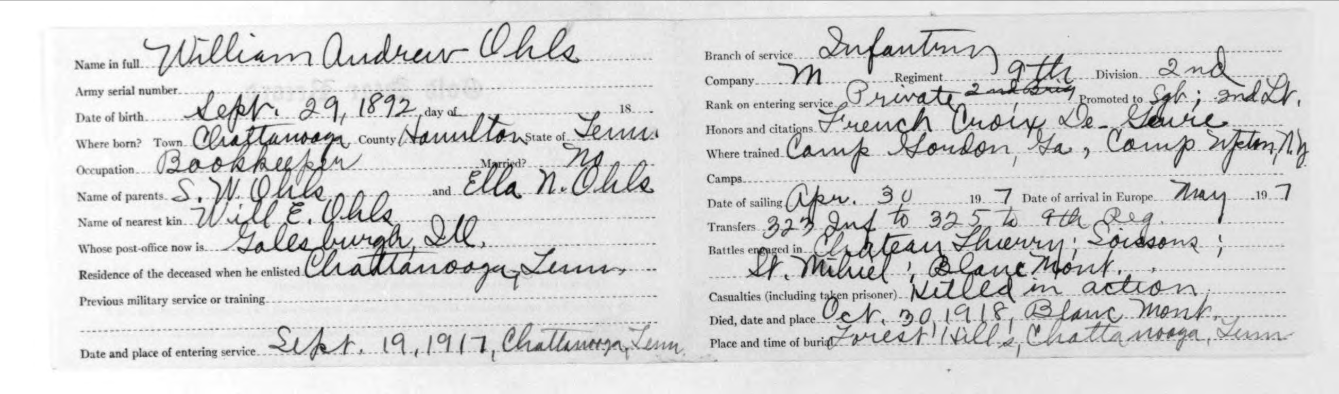 Name in full William Andrew Ohls
Army serial number
Date of birth Sept. 29, 1892, day of 18
Where born? Town Chattanooga County Hamilton State of Tenn.
Occupation Bookkeeper Married? No
Name of parents S. W. Ohls and Ella N. Ohls
Name of nearest kin Will E. Ohls
Whose post-office now is Galesburgh, Ill.
Residence of the deceased when he enlisted Chattanooga, Tenn.
Previous military service or training
Date and place of entering service Sept. 19, 1917, Chattanooga, Tenn.
Branch of service Infantry
Company M Regiment 9th Division 2nd
Rank on entering service Private 2nd Brig Promoted to Sgt; 2nd Lt.
Honors and citations French Croix De-Geure
Where trained Camp Gordon, Ga, Camp Upton, N.Y.
Camps
Date of sailing Apr. 30 19 7 Date of arrival in Europe May 19 7
Transfers 323 Inf to 325 to 9th Reg.
Battles engaged in Chateau Thierry; Soissons;
St. Mihiel; Blanc Mont.
Casualties (including taken prisoner) Killed in action
Died, date and place Oct. 30, 1918, Blanc Mont.
Place and time of burial Forest Hills, Chattanooga, Tenn